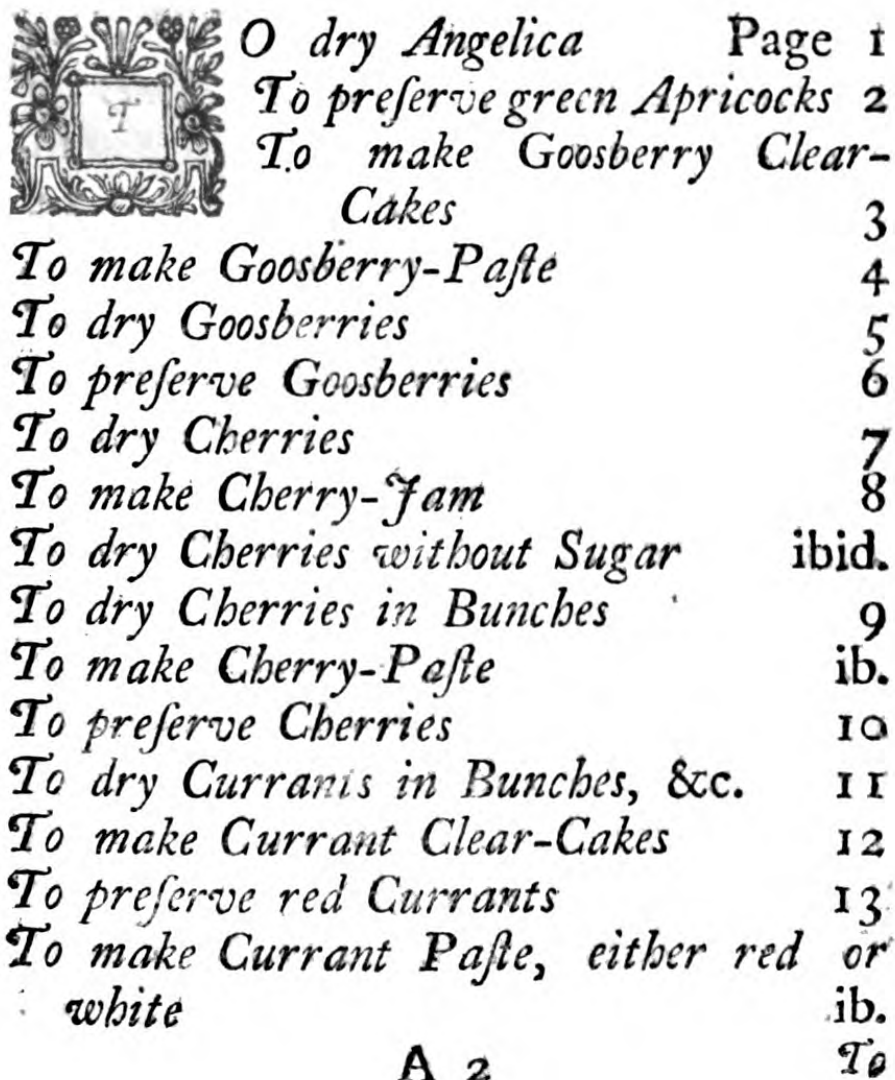 TO dry Angelica Page 1
To preſerve green Apricocks 2
To make Goosberry Clear-
Cakes 3
To make Goosberry-Paſte 4
To dry Goosberries 5
To preſerve Goosberries 6
To dry Cherries 7
To make Cherry-Jam 8
To dry Cherries without Sugar ibid.
To dry Cherries in Bunches 9
To make Cherry-Paſte ib.
To preſerve Cherries 10
To dry Currants in Bunches, &c. 11
To make Currant Clear-Cakes 12
To preſerve red Currants 13
To make Currant Paſte, either red or
white ib.
A 2 To